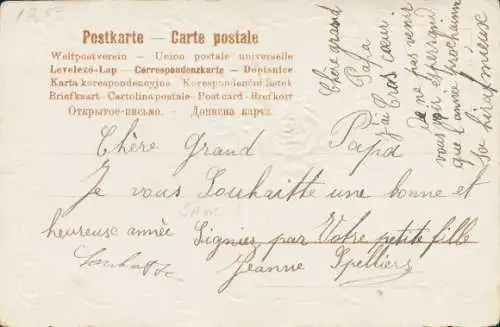 1250
Postkarte — Carte postale
Weltpostverein — Union postale universelle
Levelező-Lap — Correspondenzkarte — Dopisnice
Karta korespondencyjna Korespondenční lístek
Briefkaart - Cartolina postale - Post card - Brefkort
Открытое-письмо. — Дописна карта.
Chère grand
Papa
j'ai Gros cœur
de ne pas venir
vous voir esperaqui
que l'année prochainne
sa hiraf mieux
Chère Grand Papa
Je vous Souhaitte une bonne et
heureuse année Signier par Votre petite fille
Jeanne Spelliers